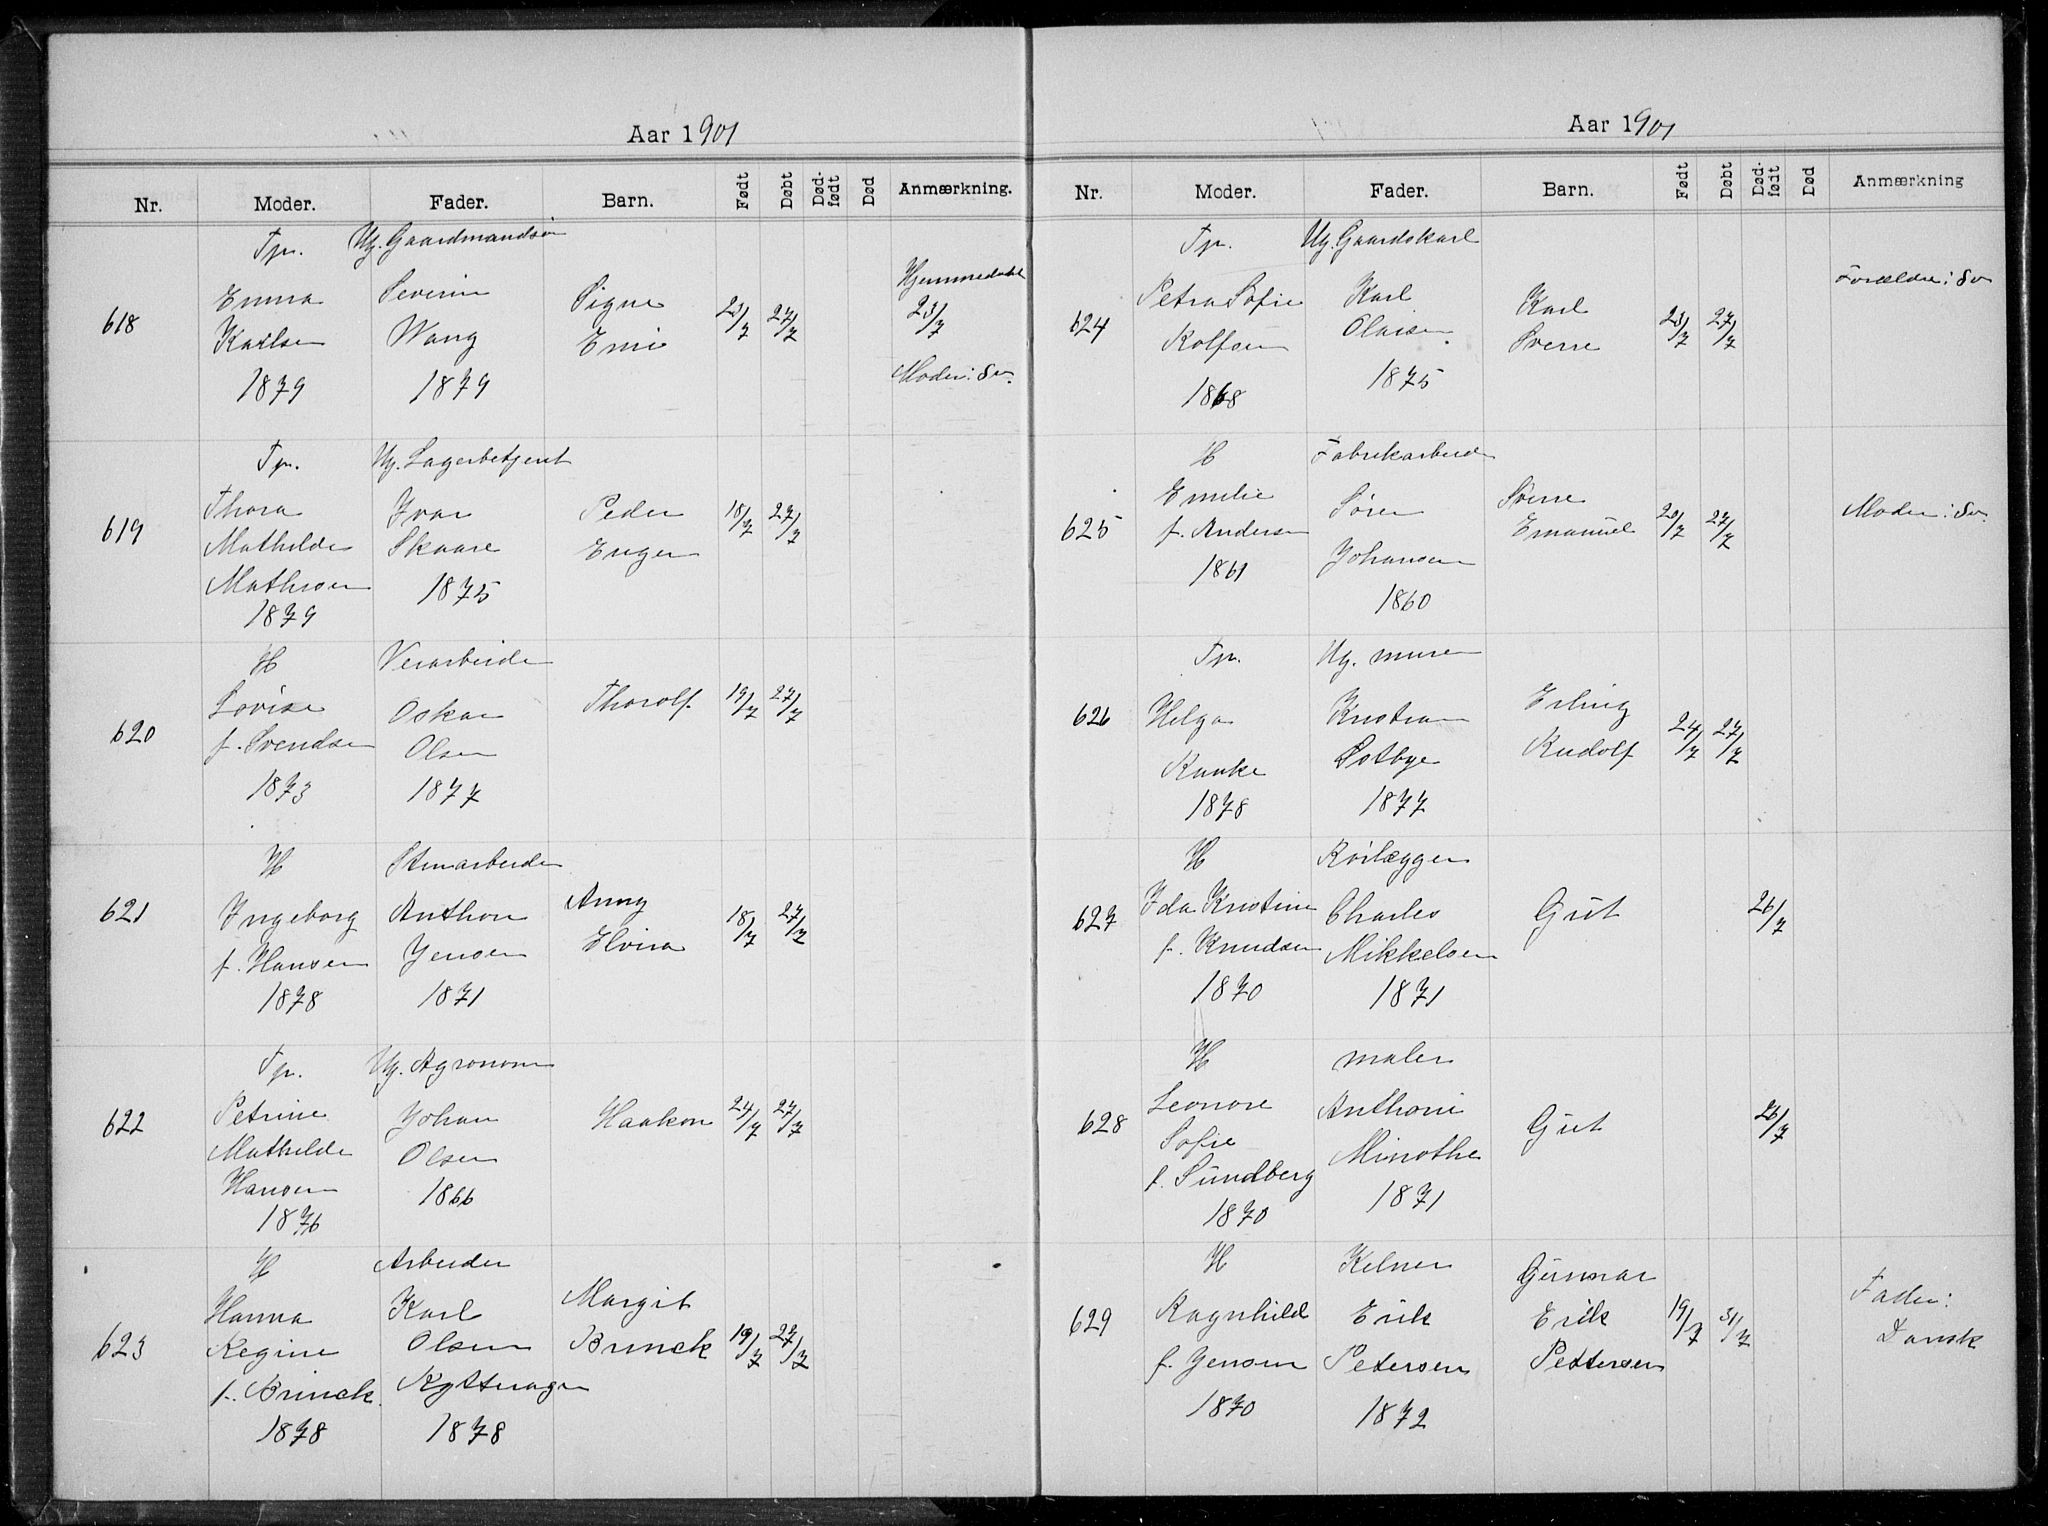 Aar 1901
Nr. Moder. Fader. Barn. Født Døbt Død-født Død Anmærkning.
Tp. Ug. Gaardmandssøn
618 Emma Severin Signe 23/7 27/7 Hjemmedøbt
Karlsen Wang Emi 23/7
1879 1879 Moder: Sv.
Tp. Ug. Lagerbetjent
619 Thora Ivar Peder 18/7 27/7
Mathilde Skaare Eugen
Mathisen 1875
1879
H Verarbeider
620 Lovise Oskar Thorolf 19/7 27/7
f. Svendsen Olsen
1873 1877
H Stenarbeider
621 Ingeborg Anthon Anny 18/7 27/7
f. Hansen Jensen Elvira
1878 1871
Tp. Ug. Agronom
622 Petrine Johan Haakon 24/7 27/7
Mathilde Olsen
Hansen 1866
1876
H Arbeider
Hanna Karl Margit
623 Regine Olsen Brinck 19/7 27/7
f. Brinck
1878 1878
Aar 1901
Nr. Moder. Fader. Barn. Født Døbt Død-født Død Anmærkning
Tp. Ug. Gaardskarl
624 Petra Sofie Karl Karl 23/7 27/7 Forældre: Sv
Rolfsen Olaisen Sverre
1868 1875
H Fabrikarbeider
625 Emilie Søren Sverre 20/7 27/7 Moder: Sv.
f. Andersen Johansen Emanuel
1861 1860
Tp. Ug. murer
626 Helga Kristian Erling 24/7 27/7
Ranke Østbye Rudolf
1878 1877
H Rørlægger
627 Ida Kristine Charles Gut 26/7
f. Knudsen Mikkelsen
1870 1871
H maler
628 Leonore Anthoni Gut 26/7
Sofie Minothe
f. Sundberg 1871
1870
H Kelner Gunnar Fader:
629 Ragnhild Erik Erik 19/7 31/7 Dansk
f. Jensen Petersen Pettersen
1870 1872